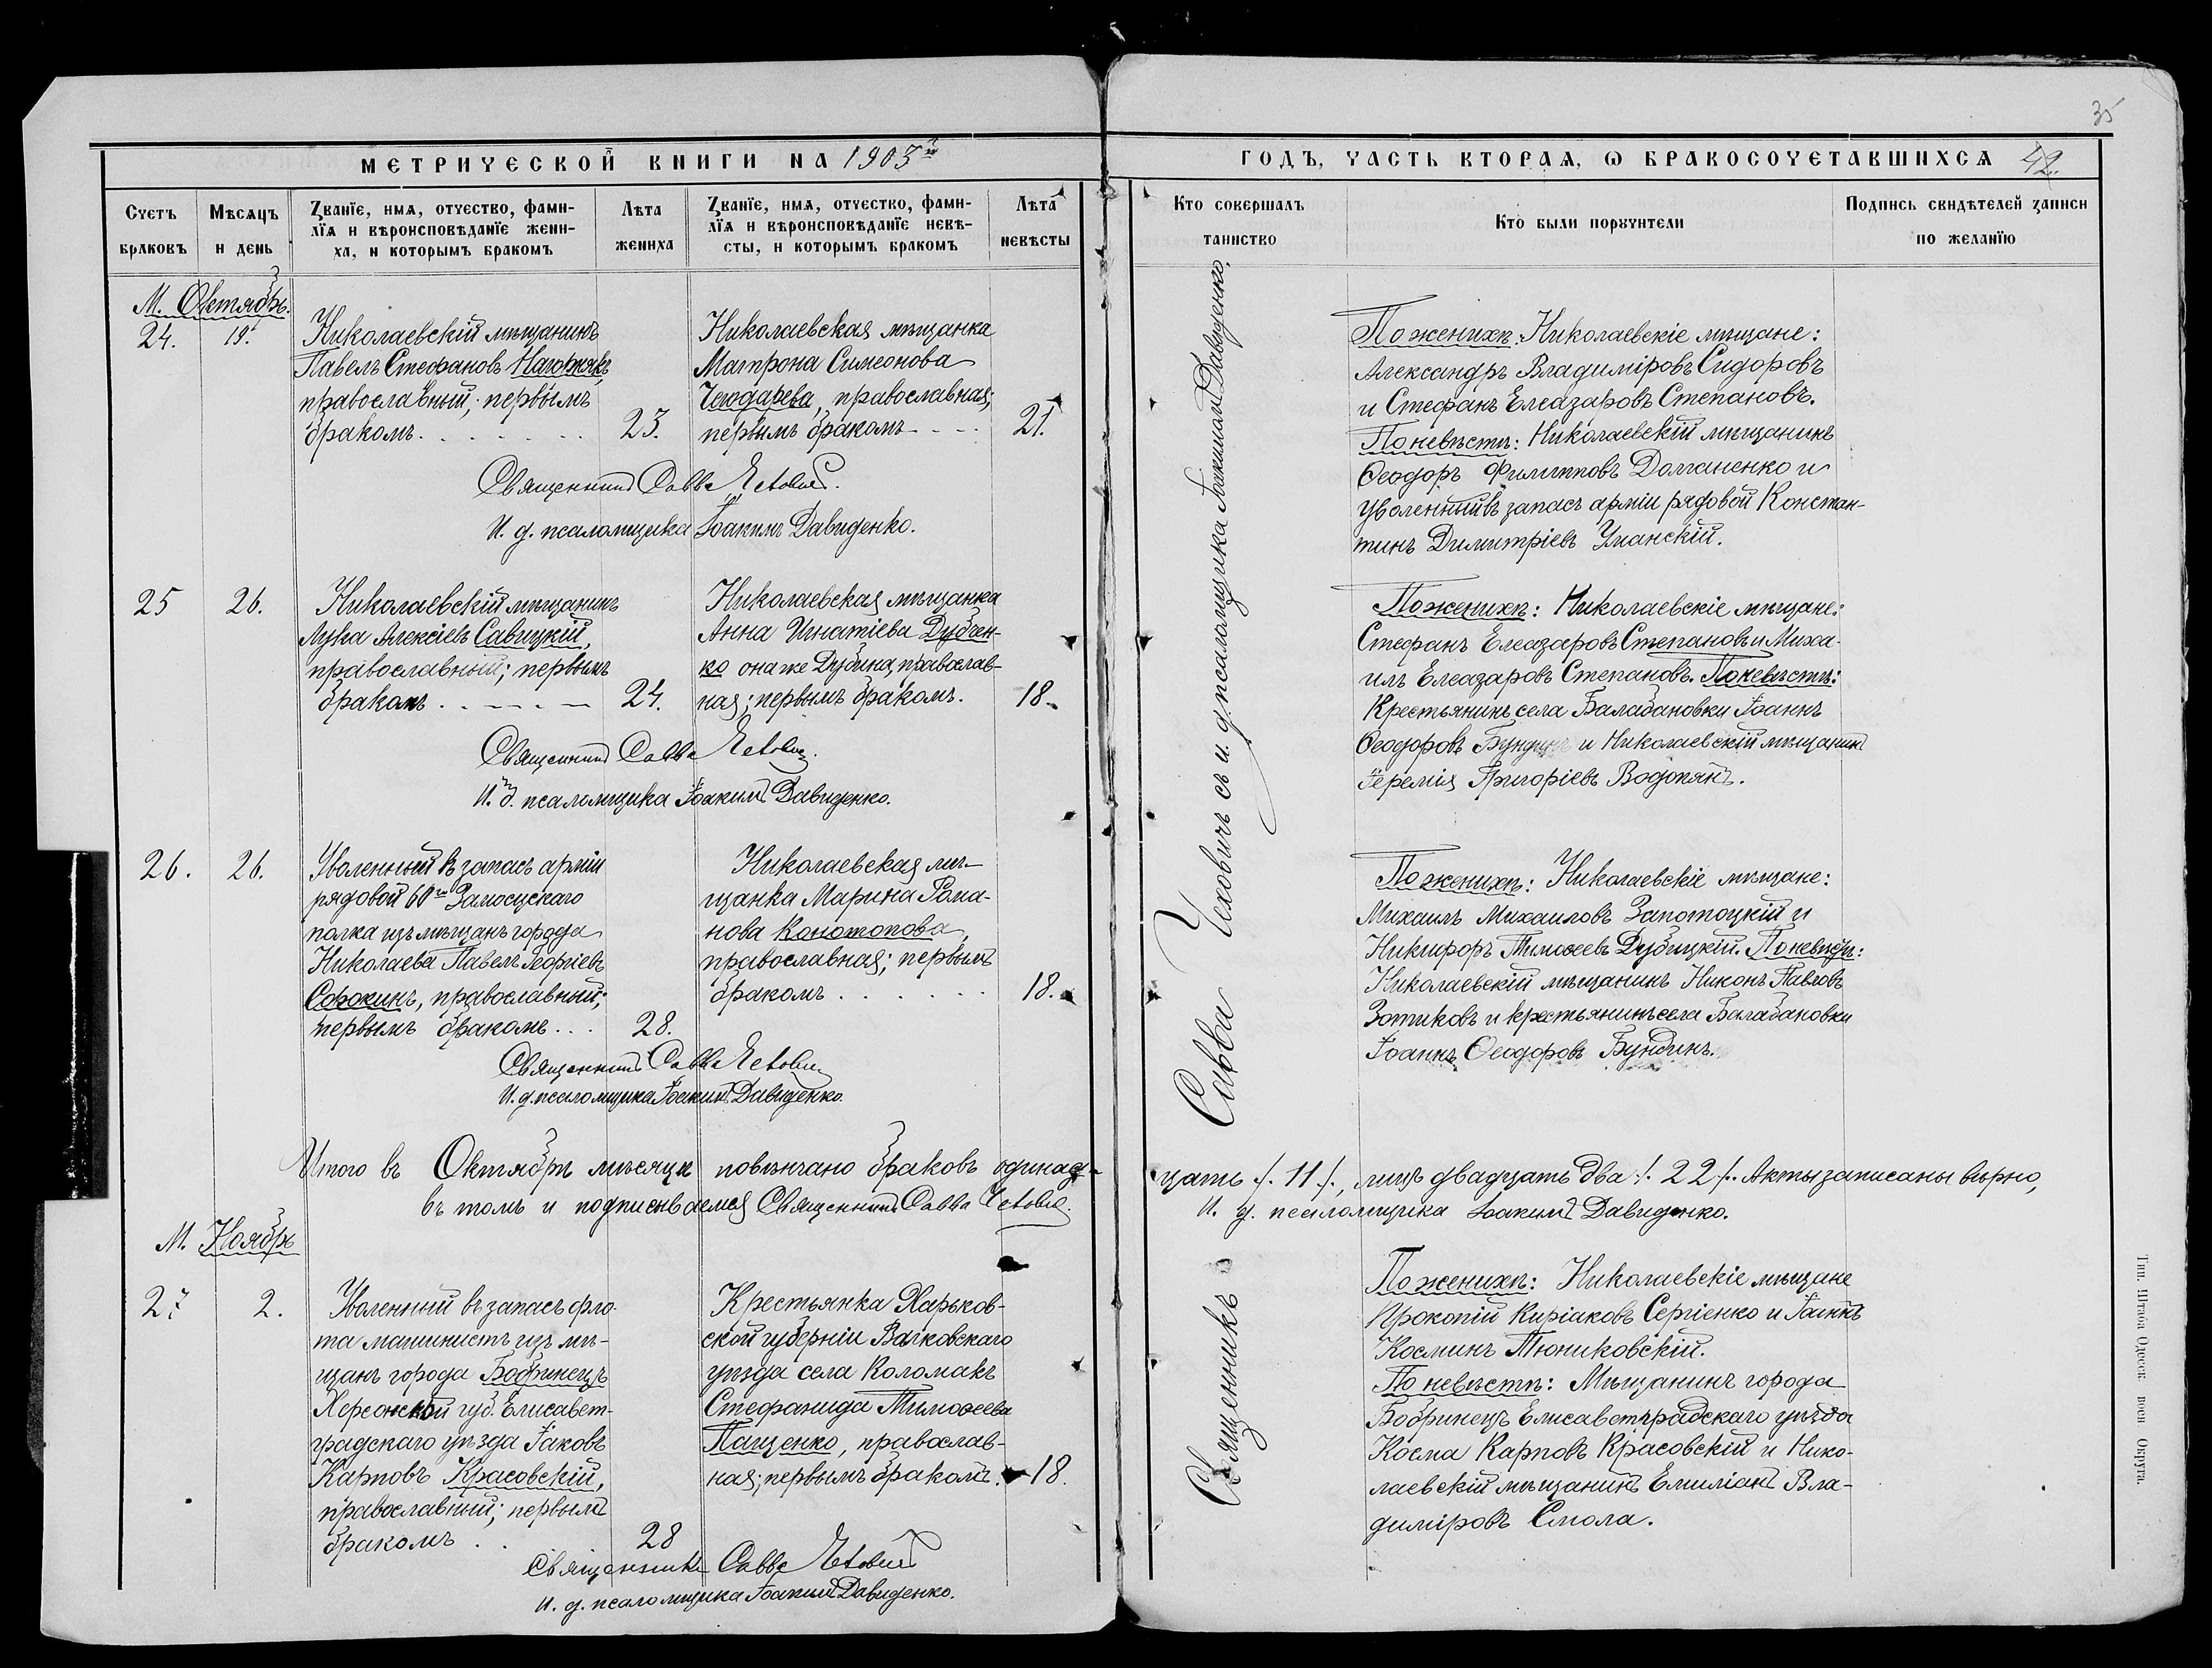 35
МЕТРИЧЕСКОЙ КНИГИ НА 1903й
ГОДЪ, ЧАСТЬ ВТОРАЯ, Ѡ БРАКОСОЧЕТАВШИХСЯ 42.
Счетъ браковъ
Мѣсяцъ и день
Званїе, имя, отчество, фами-
лїя и вѣроисповѣданїе жени-
ха, и которымъ бракомъ
Лѣта жениха
Званїе, имя, отчество, фами-
лїя и вѣроисповѣданїе невѣ-
сты, и которымъ бракомъ
Лѣта невѣсты
Кто совершалъ таинство
Кто были порꙋчители
Подпись свидѣтелей записи
по желанїю
М. Октябрь.
24. 19.
Николаевскій мѣщанинъ
Павелъ Стефановъ
православный; первымъ
бракомъ. 23.
Николаевская мѣщанка
Матрона Симеонова
православная;
первымъ бракомъ 21.
Священникъ Савва Чеховичъ.
И. д. псаломщика Іоакимъ Давиденко.
По женихѣ: Николаевскіе мѣщане:
Александръ Владиміровъ Сидоровъ
и Стефанъ Елеазаровъ Степановъ.
По невѣстѣ: Николаевскій мѣщанинъ
Ѳеодоръ Филипповъ Долганенко и
уволенный въ запасъ арміи рядовой Констан-
тинъ Димитріевъ Уманскій.
25 26.
Николаевскій мѣщанинъ
Лука Алексіевъ Савицкій,
православный; первымъ
бракомъ 24.
Николаевская мѣщанка
Анна Игнатіева Дубчен-
ко она же Дубина, православ-
ная; первымъ бракомъ. 18.
Священникъ Савва Чеховичъ.
И. д. псаломщика Іоакимъ Давиденко.
По женихѣ: Николаевскіе мѣщане:
Стефанъ Елеазаровъ Степановъ и Миха-
илъ Елеазаровъ Степановъ. По невѣстѣ:
Крестьянинъ села Балабановки Іоаннъ
Ѳеодоровъ Бундинъ и Николаевскій мѣщанинъ
Іеремія Григоріевъ Водопянъ.
26. 26.
Уволенный въ запасъ арміи
рядовой 60го Замосцскаго
полка изъ мѣщанъ города
Николаева Павелъ Георгіевъ
Сорокинъ, православный;
первымъ бракомъ... 28.
Николаевская мѣ-
щанка Марина Рома-
нова Конотопова,
православная; первымъ
бракомъ 18.
Священникъ Савва Чеховичъ
И. д. псаломщика Іоакимъ Давиденко.
По женихѣ: Николаевскіе мѣщане:
Михаилъ Михаиловъ Запотоцкій и
Никифоръ Тимоѳеевъ Дубицкій. По невѣстѣ:
Николаевскій мѣщанинъ Никонъ Павловъ
Зотиковъ и крестьянинъ села Балабановки
Іоаннъ Ѳеодоровъ Бундинъ.
Итого въ Октябрѣ мѣсяцѣ повѣнчано браковъ одинад-
цать /. 11 /., лицъ двадцать два /. 22 /. Акты записаны вѣрно,
въ томъ и подписываемся Священникъ Савва Чеховичъ.
И. д. псаломщика Іоакимъ Давиденко.
М. Ноябрь
27. 2.
Уволенный въ запасъ фло-
та машинистъ изъ мѣ-
щанъ города Бобринецъ
Херсонской губ. Елисавет-
градскаго уѣзда Іаковъ
Карповъ Красовскій,
православный; первымъ
бракомъ . . 28
Крестьянка Харьков-
ской губерніи Валковскаго
уѣзда села Коломакъ
Стефанида Тимоѳеева
Пащенко, православ-
ная; первымъ бракомъ. 18.
Священникъ Савва Чеховичъ
И. д. псаломщика Іоакимъ Давиденко.
По женихѣ: Николаевскіе мѣщане
Прокопій Киріаковъ Сергіенко и Іоаннъ
Косминъ Тюниковскій.
По невѣстѣ: Мѣщанинъ города
Бобринецъ Елисаветградскаго уѣзда
Косма Карповъ Красовскій и Нико-
лаевскій мѣщанинъ Емиліанъ Вла-
диміровъ Смола.
Священникъ Савва Чеховичъ съ и. д. псаломщика Іоакимомъ Давиденко.
Тип. Штаба Одесск. воен. Округа.